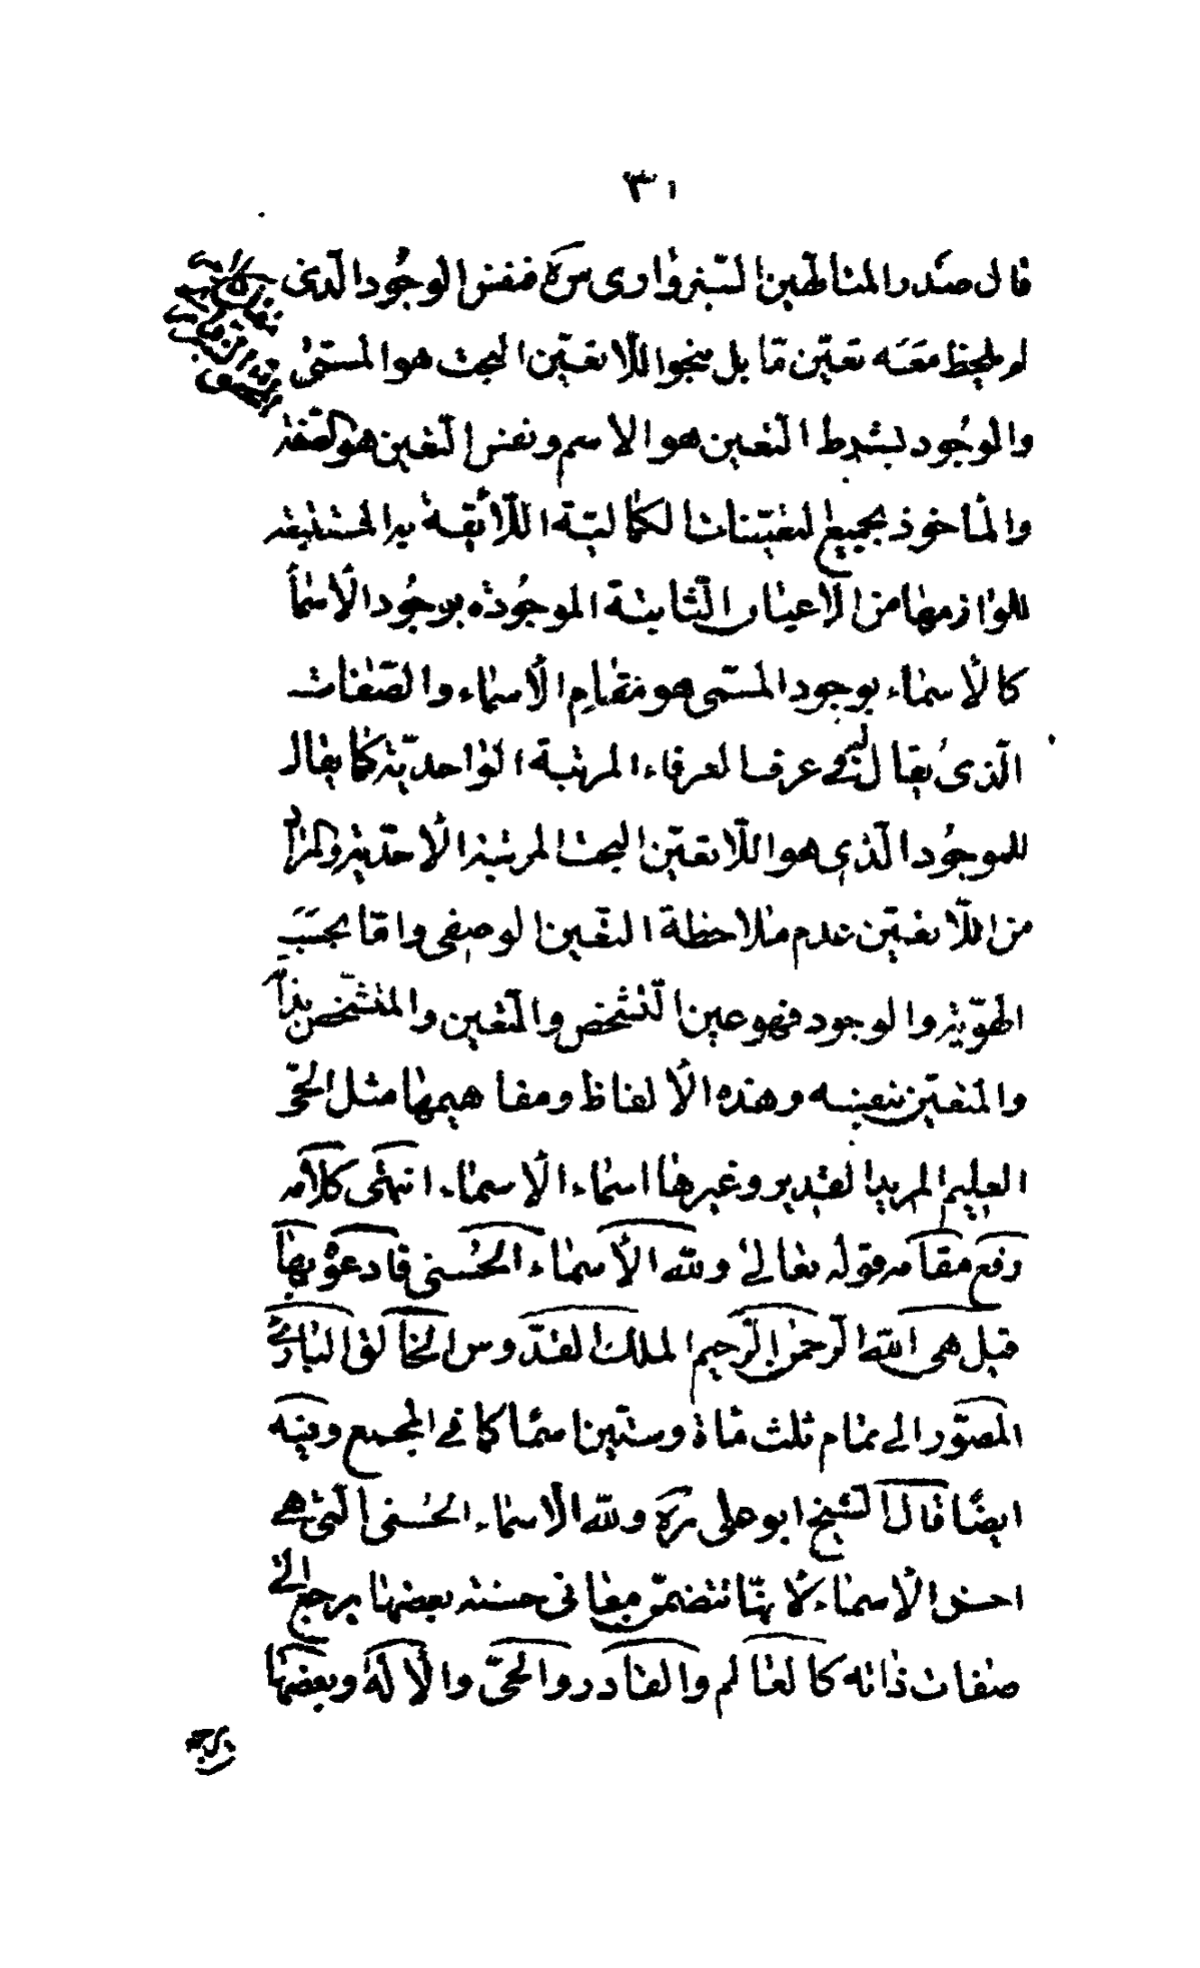 ٣١
قال صدر المتألهين الشيرازى سره فنفس الوجود الّذى
لم يلحظ معه تعيّن ما بل بنحو اللّاتعيّن البحت هو المسمّى
والوجود بشرط التعين هو الاسم ونفس التّعين هو الصّفة
والمأخوذ بجميع التعيّنات الكماليّة اللّائقة به المستتبعة
للوازمها من الاعيان الثّابتة الموجودة بوجود الأسماء
كالأسماء بوجود المسمّى هو مقام الأسماء والصّفات
الّذى يقال له فى عرف العرفاء المرتبة الواحديّة كما يقال
للموجود الّذى هو اللّاتعيّن البحت المرتبة الأحديّة والمراد
من اللّاتعيّن عدم ملاحظة التّعين الوصفى وامّا بحسب
الهويّة والوجود فهو عين التّشخص والتّعين والمتشخّص بذاته
والمتعيّن بنفسه وهذه الألفاظ ومفاهيمها مثل الحىّ
العليم المريد القدير وغيرها اسماء الأسماء انتهى كلامه
رفع مقامه قوله تعالى ولله الأسماء الحسنى فادعوه بها
قيل هى الله الرّحمن الرّحيم الملك القدّوس الخالق البارئ
المصوّر الى تمام ثلث مأة وستّين اسما كما فى المجمع وفيه
ايضًا قال الشيخ ابو على ره ولله الأسماء الحسنى الّتى هى
احسن الأسماء لأنّها تتضمّن معانى حسنة بعضها يرجع الى
صفات ذاته كالعالم والقادر والحىّ والأله وبعضها